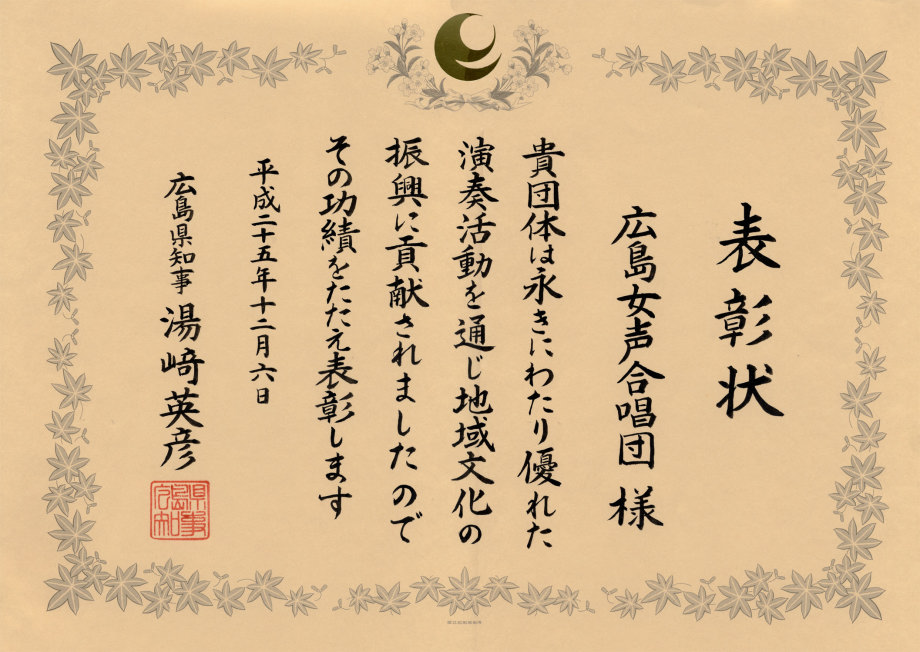 表彰状
広島女声合唱団 様
貴団体は永きにわたり優れた
演奏活動を通じ地域文化の
振興に貢献されましたので
その功績をたたえ表彰します
平成二十五年十二月六日
広島県知事 湯﨑英彦
広島県知事